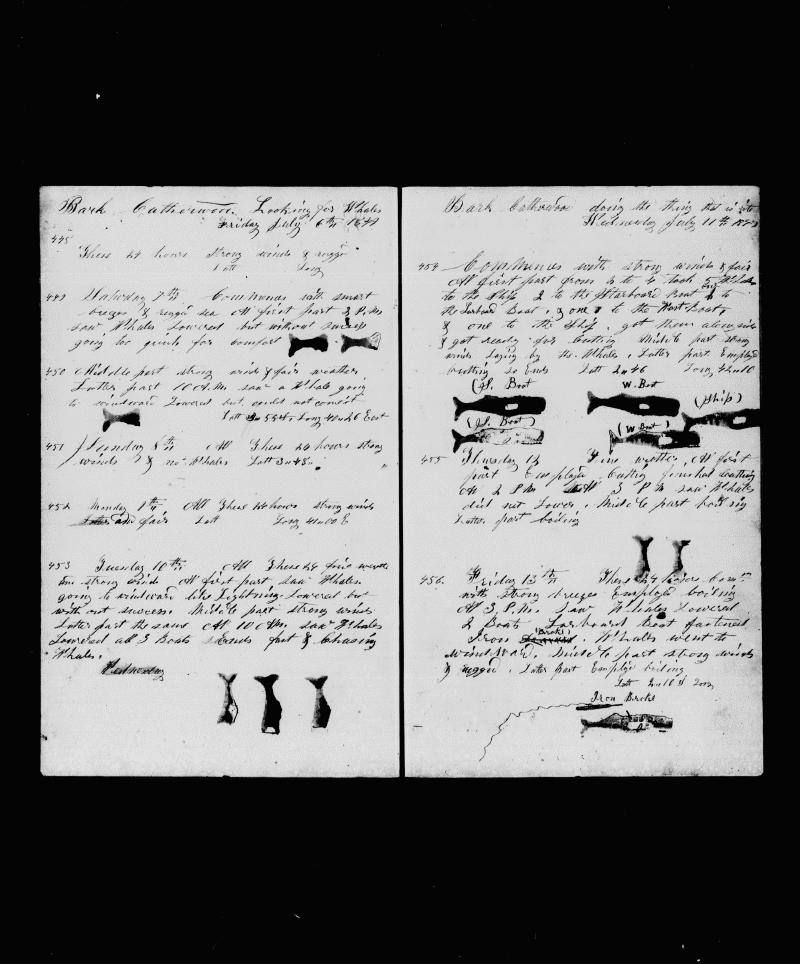 Bark Catherwood Looking for Whales
Friday July 6th 1849
448
These 24 hours strong winds & rugged
Latt Long
449 Saturday 7th Commences with smart
breezes & rugged sea At first part P.M.
saw Whales Lowered but without success
going to quick for comfort
450 Middle part strong winds & fair weather
Latter part 10 A.M. saw a Whale going
to windward Lowered but could not come it
Latt Long East
451 Sunday 8th All These 24 hours strong
winds & no Whales Latt
452 Monday 9th All These 24 hours strong winds
and fair Latt Long E
453 Tuesday 10th All These 24 fine weath
strong winds At first part saw Whales
going to windward like Lightning Lowered but
with out success Middle part strong winds
Latter part the same At 10 A.M. saw Whales
Lowered all 3 Boats Ends fast & Chasing
Whales.
Wednesday
Bark Catherwood doing the thing that is
Wednesday July 11th
454 Commences with strong winds & fair
At first part from to 4 took 5 Whales
to the Ship 2 to the Starboard Boat
the Larboard Boat, & one to the Waist Boat,
& one to the Ship. got them along side
& got ready for Cutting Middle part strong
winds Laying by the Whales. Latter part Employed
Cutting so Ends Latt Long
(S. Boat W. Boat
(Ship)
(L. Boat ) (W. Boat )
455 Thursday 12 Fine weather At first
part Employed Cutting finished Cutting
At 2 P.M. At 3 P.M. saw Whales
did not Lower. Middle part boiling
Latter part boiling
456 Friday 13th These 24 hours Com
with strong breezes Employed boiling
At 3 P.M. saw Whales Lowered
2 Boats Larboard Boat fastened
Iron (Broke). Whales went to
windward. Middle part strong winds
& rugged. Latter part Employed boiling
Latt Long
Iron Broke